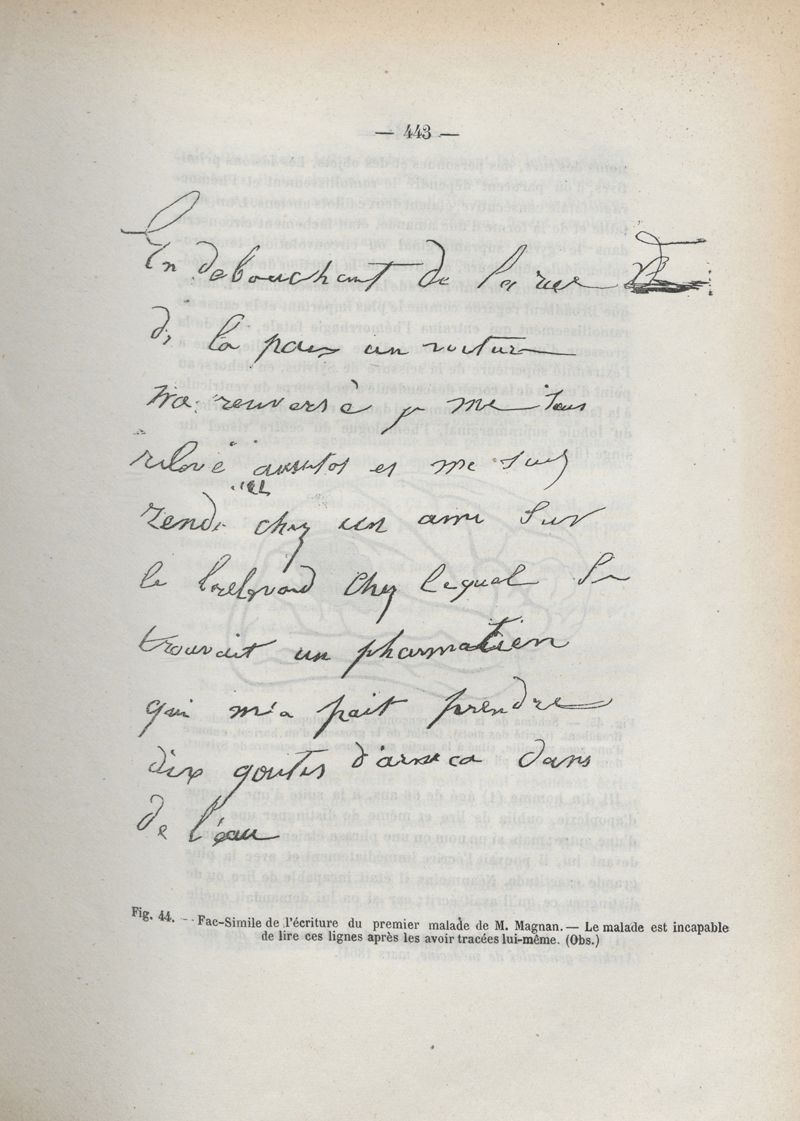 — 443 —
En debouchant de la rue
de la paix un voiture
ma renversè je me suis
relové aussitot et me suis
rendu chez un ami sur
le bolevard chez lequel se
trouvait un pharmatien
qui m'a fait prendre
dix goutes d'arnica dans
de l'éau
Fig. 44. — Fac-Simile de l'écriture du premier malade de M. Magnan. — Le malade est incapable
de lire ces lignes après les avoir tracées lui-même. (Obs.)